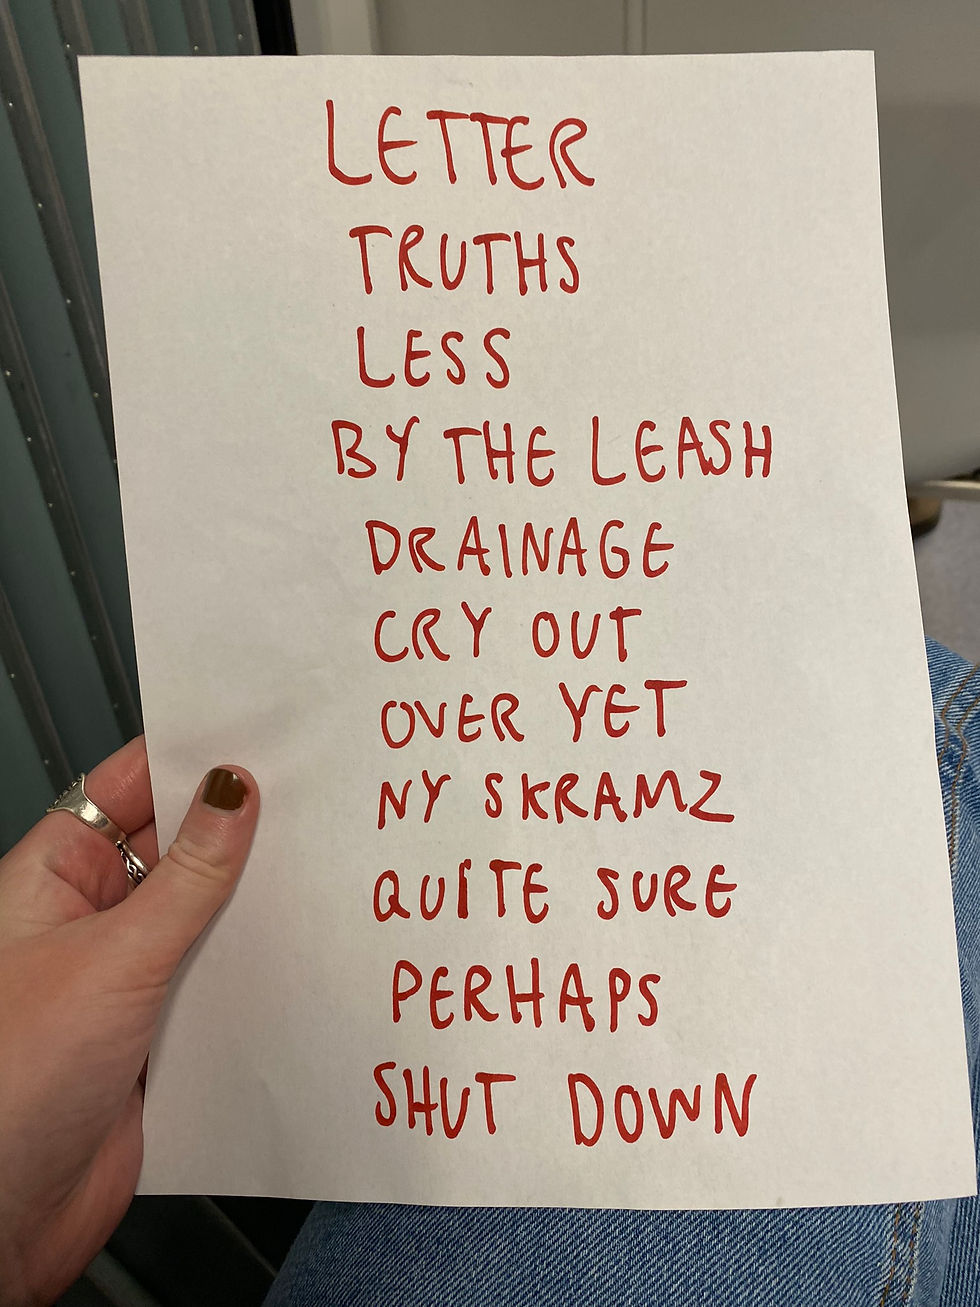 LETTER
TRUTHS
LESS
BY THE LEASH
DRAINAGE
CRY OUT
OVER YET
NY SKRAMZ
QUITE SURE
PERHAPS
SHUT DOWN